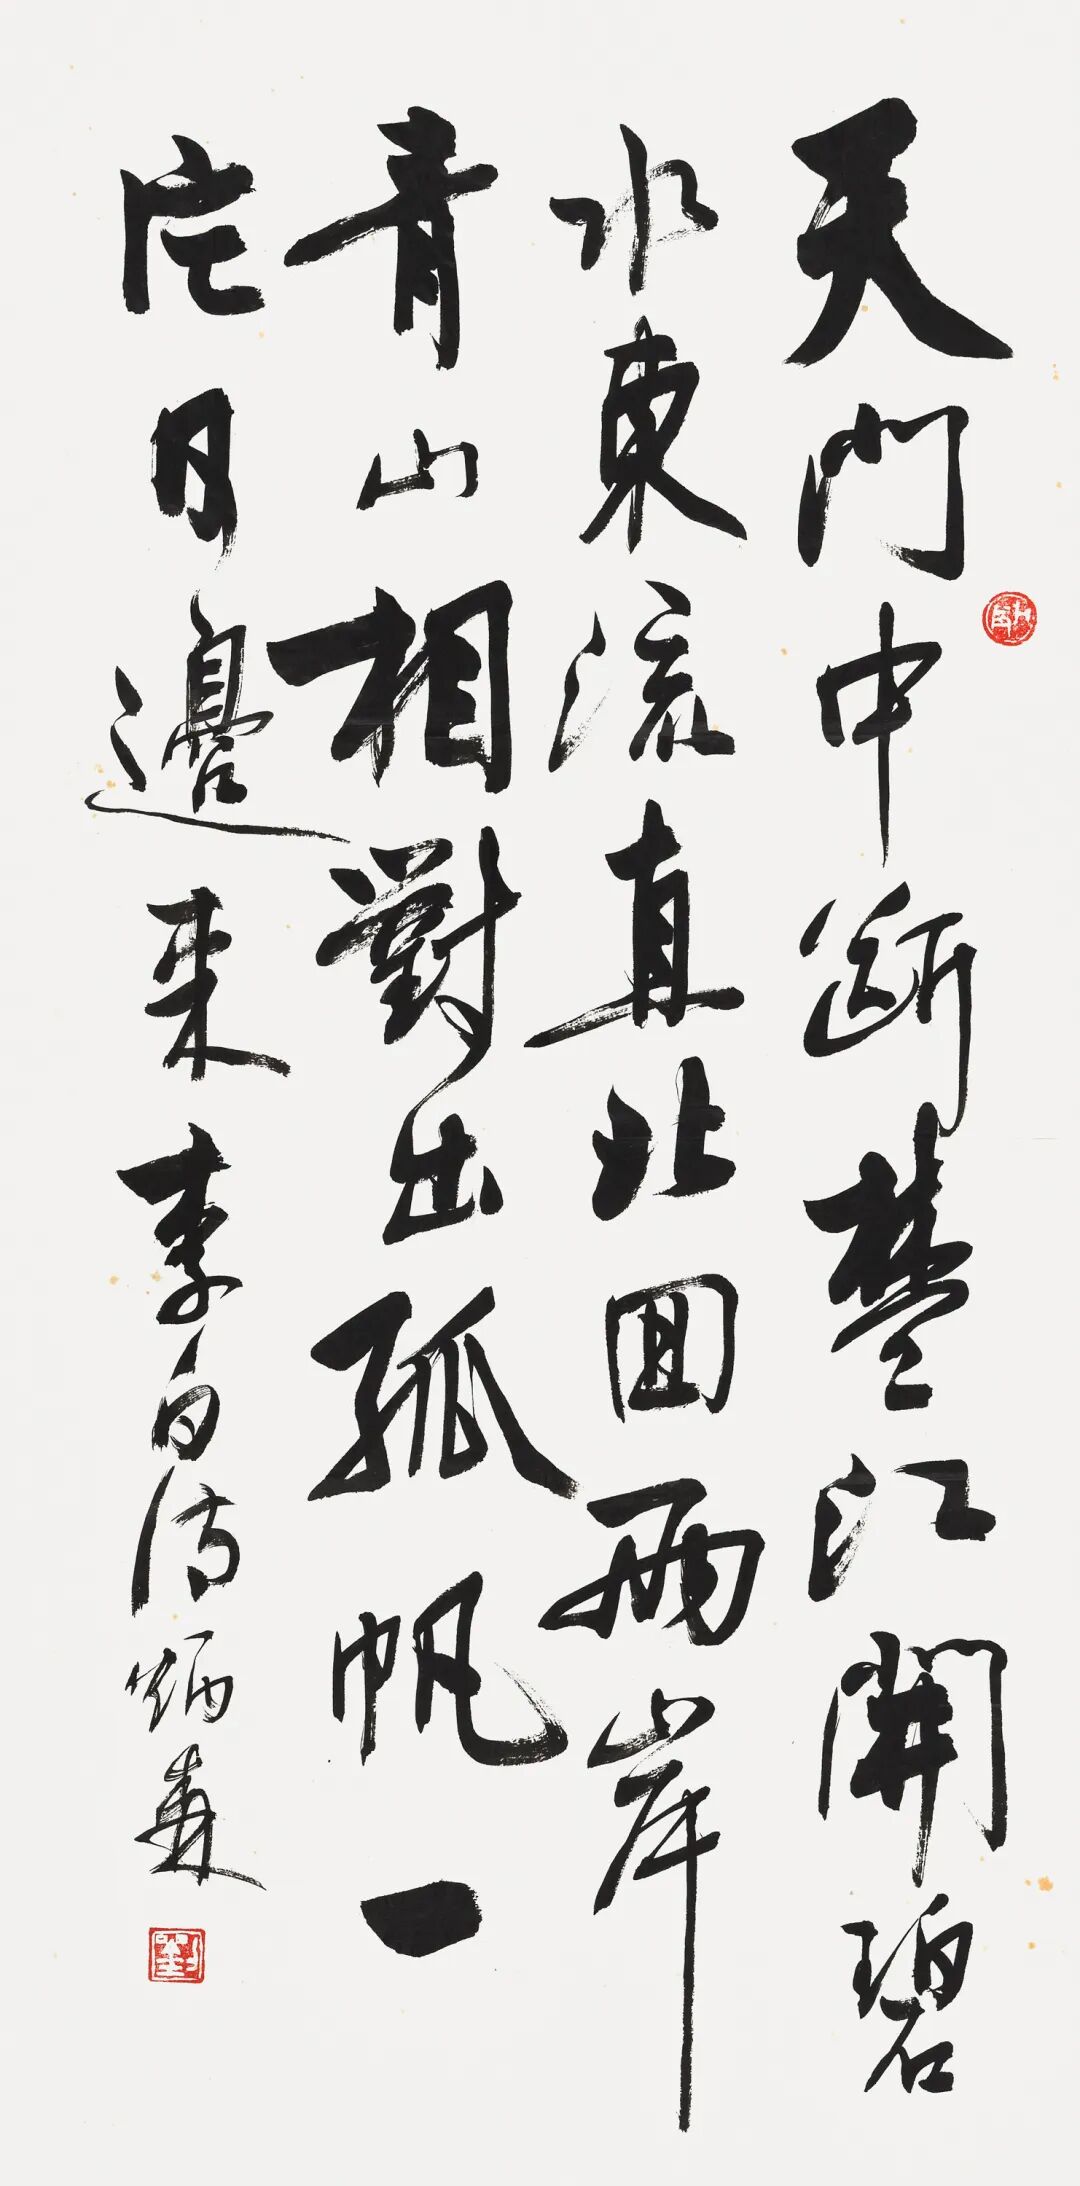 天門中断楚江開碧
水東流直北回兩岸
青山相對出孤帆一
片日邊来李白詩炳森
劉